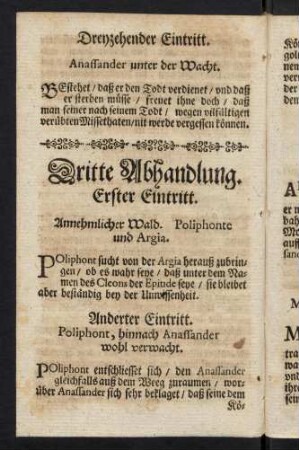 Dreyzehender Eintritt.
Anassander unter der Wacht.
BEstehet / daß er den Todt verdienet / und daß
er sterben müsse / freuet ihne doch / daß
man seiner nach seinem Todt / wegen vilfältigen
verübten Missethaten / nit werde vergessen können.
Dritte Abhandlung.
Erster Eintritt.
Annehmlicher Wald. Poliphonte
und Argia.
POliphont sucht von der Argia herauß zubrin-
gen / ob es wahr seye / daß unter dem Na-
men des Cleons der Epitide seye / sie bleibet
aber beständig bey der Unwissenheit.
Anderter Eintritt.
Poliphont, hinnach Anassander
wohl verwacht.
POliphont entschliesset sich / den Anassander
gleichfalls auß dem Weeg zuraumen / wor-
über Anassander sich sehr beklaget / daß seine dem
Kö-